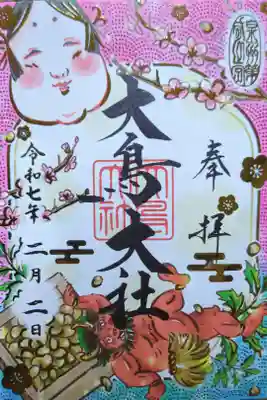 奉拝
大鳥大社
令和七年 二月二日